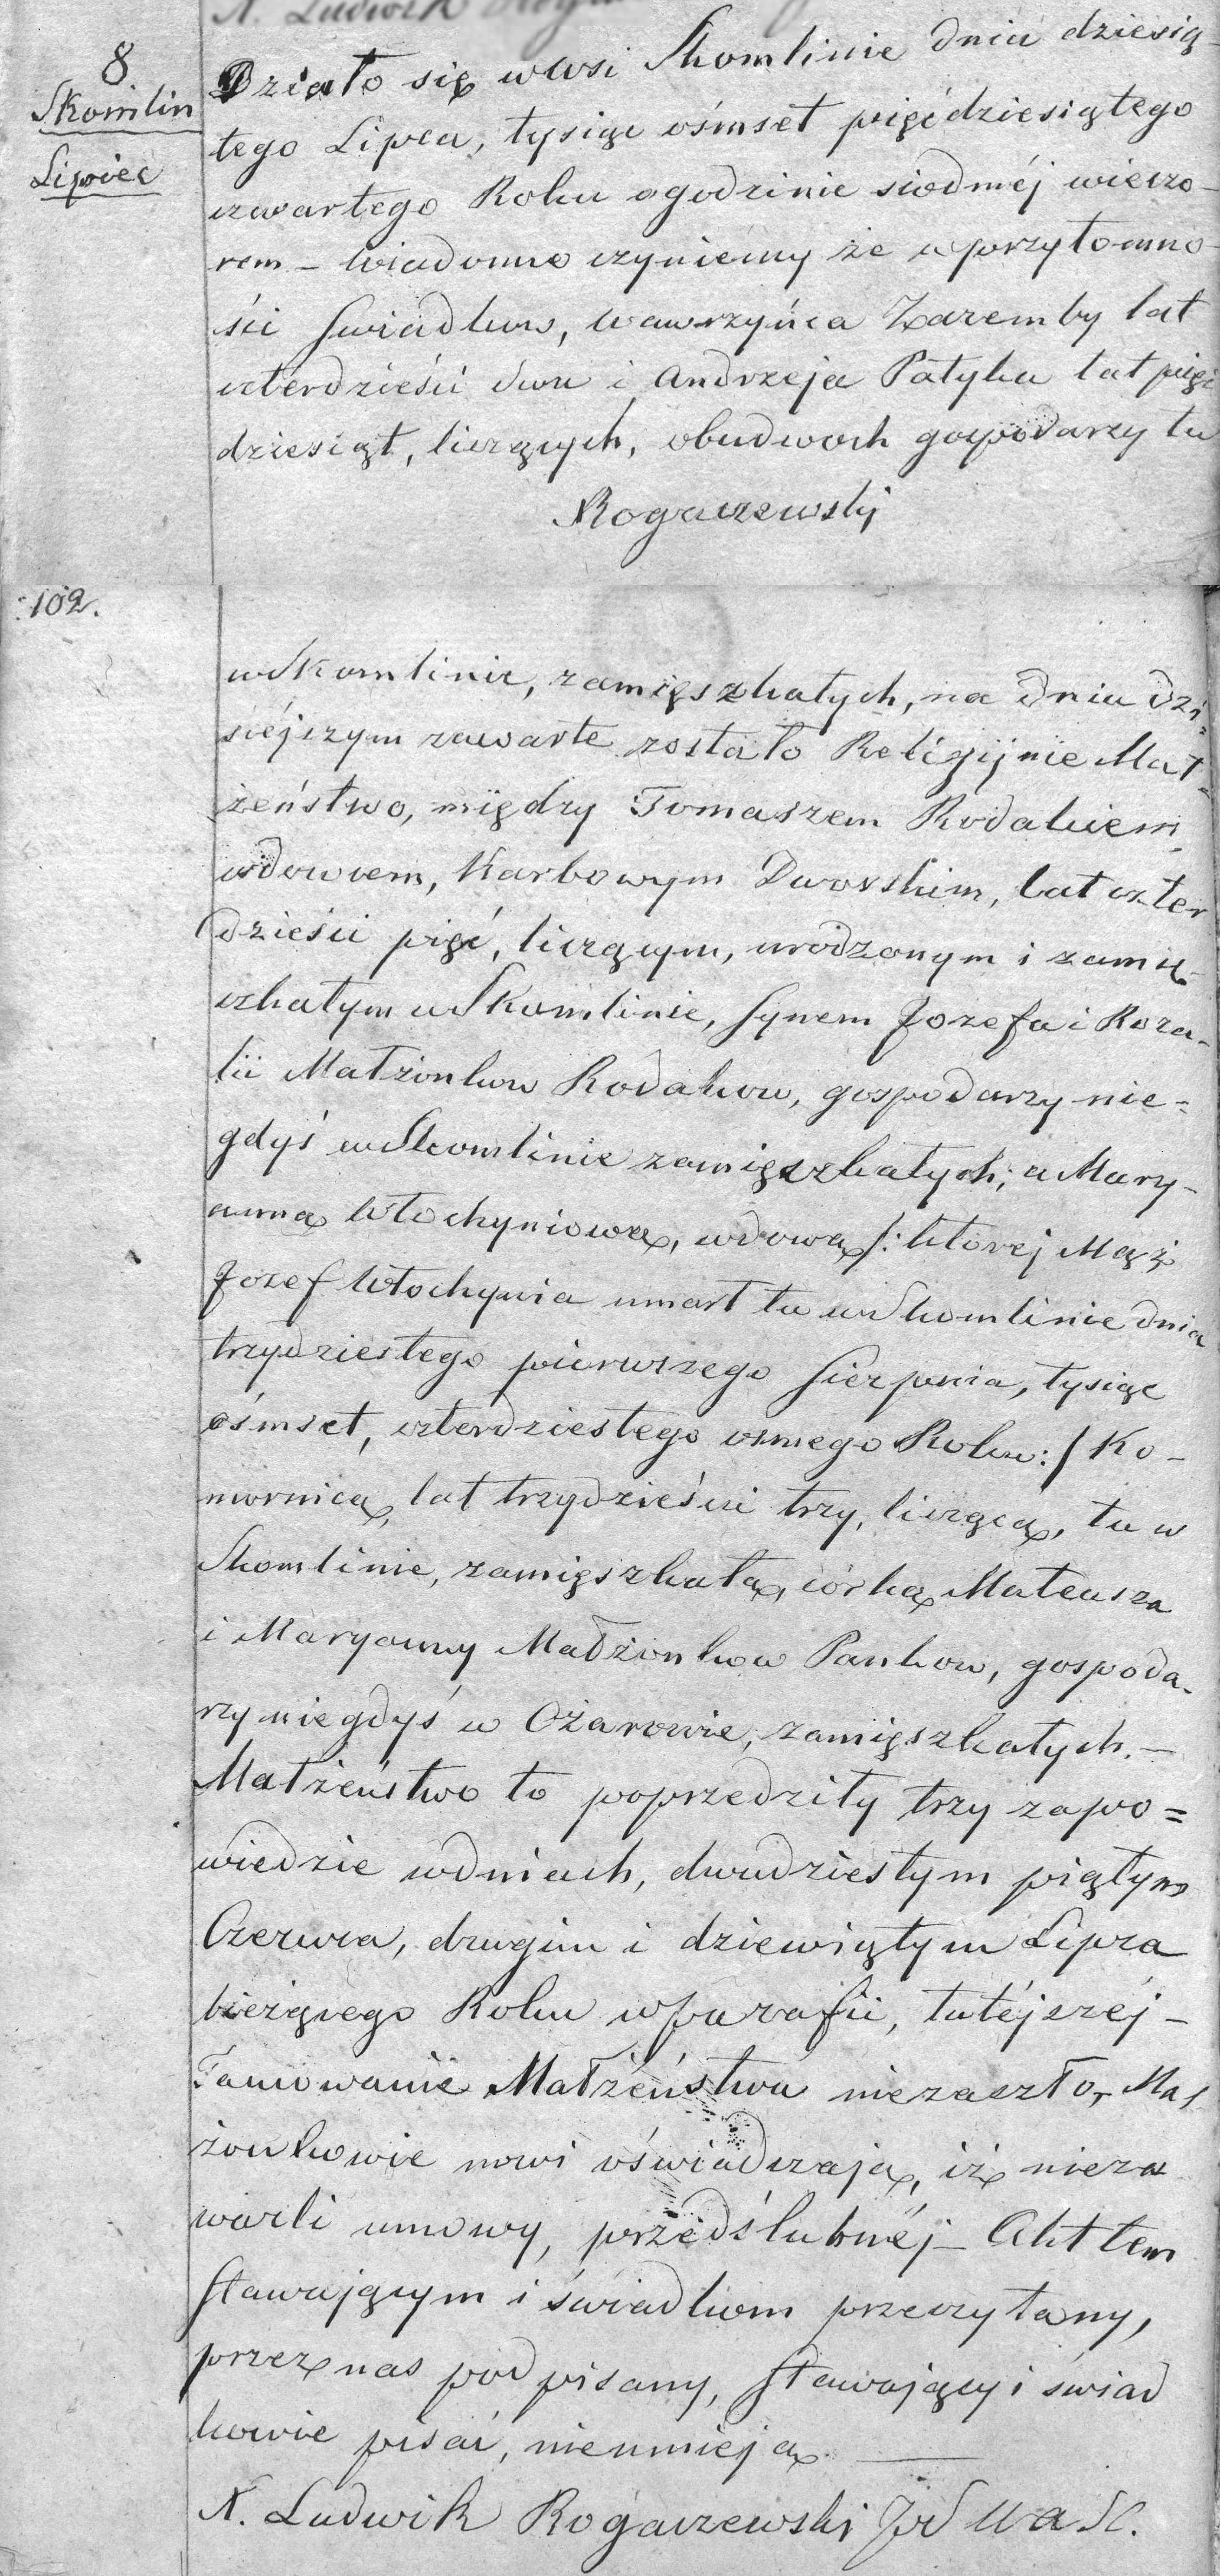 N. Ludwik
8.
Skomlin
Lipiec
Działo się w wsi Skomlinie dniu dziesią-
tego Lipca, tysiąc ośmset pięćdziesiątego
czwartego Roku o godzinie siodméj wieczo-
rem – wiadomo czyniemy że w przytomno-
ści swiadkow, Wawrzyńca Zaremby lat
czterdzieści dwa i Andrzeja Patyka lat pięć
dziesiąt, liczących, obudwoch gospodarzy tu
Rogaczewski
102.
w Skomlinie, zamięszkałych, na dniu dzi-
siéjszym zawarte zostało Religijnie Mał-
żeństwo, między Tomaszem Rodakiem,
wdowcem, Karbowym Dworskim, lat czter
dzieści pięć, liczącym, urodzonym i zamię-
szkałym w Skomlinie, synem Jozefa i Roza-
lii Małżonkow Rodakow, gospodarzy nie-
gdyś w Skomlinie zamięszkałych; a Mary-
anną Włochyniową, wdową /: ktorej Mąż
Jozef Włochynia umarł tu w Skomlinie dnia
trzydziestego pierwszego Sierpnia, tysiąc
ośmset, czterdziestego osmego Roku :/ Ko-
mornicą, lat trzydzieści trzy, liczącą, tu w
Skomlinie, zamięszkałą, córką Mateusza
i Maryanny Małżonkow Pankow, gospoda-
rzy niegdyś w Ożarowie, zamięszkałych. –
Małżeństwo to poprzedziły trzy zapo=
wiedzie w dniach, dwudziestym piątym
Czerwca, drugim i dziewiątym Lipca
bieżącego Roku w parafii, tutéjszéj –
Tamowanie Małżeństwa nie zaszło, Mał
żonkowie nowi oświadczają, iż nieza
warli umowy, przedślubnéj – Akt ten
stawającym i świadkom przeczytany,
przez nas podpisany, stawający i świad
kowie pisać, nieumieją. —
X. Ludwik Rogaczewski